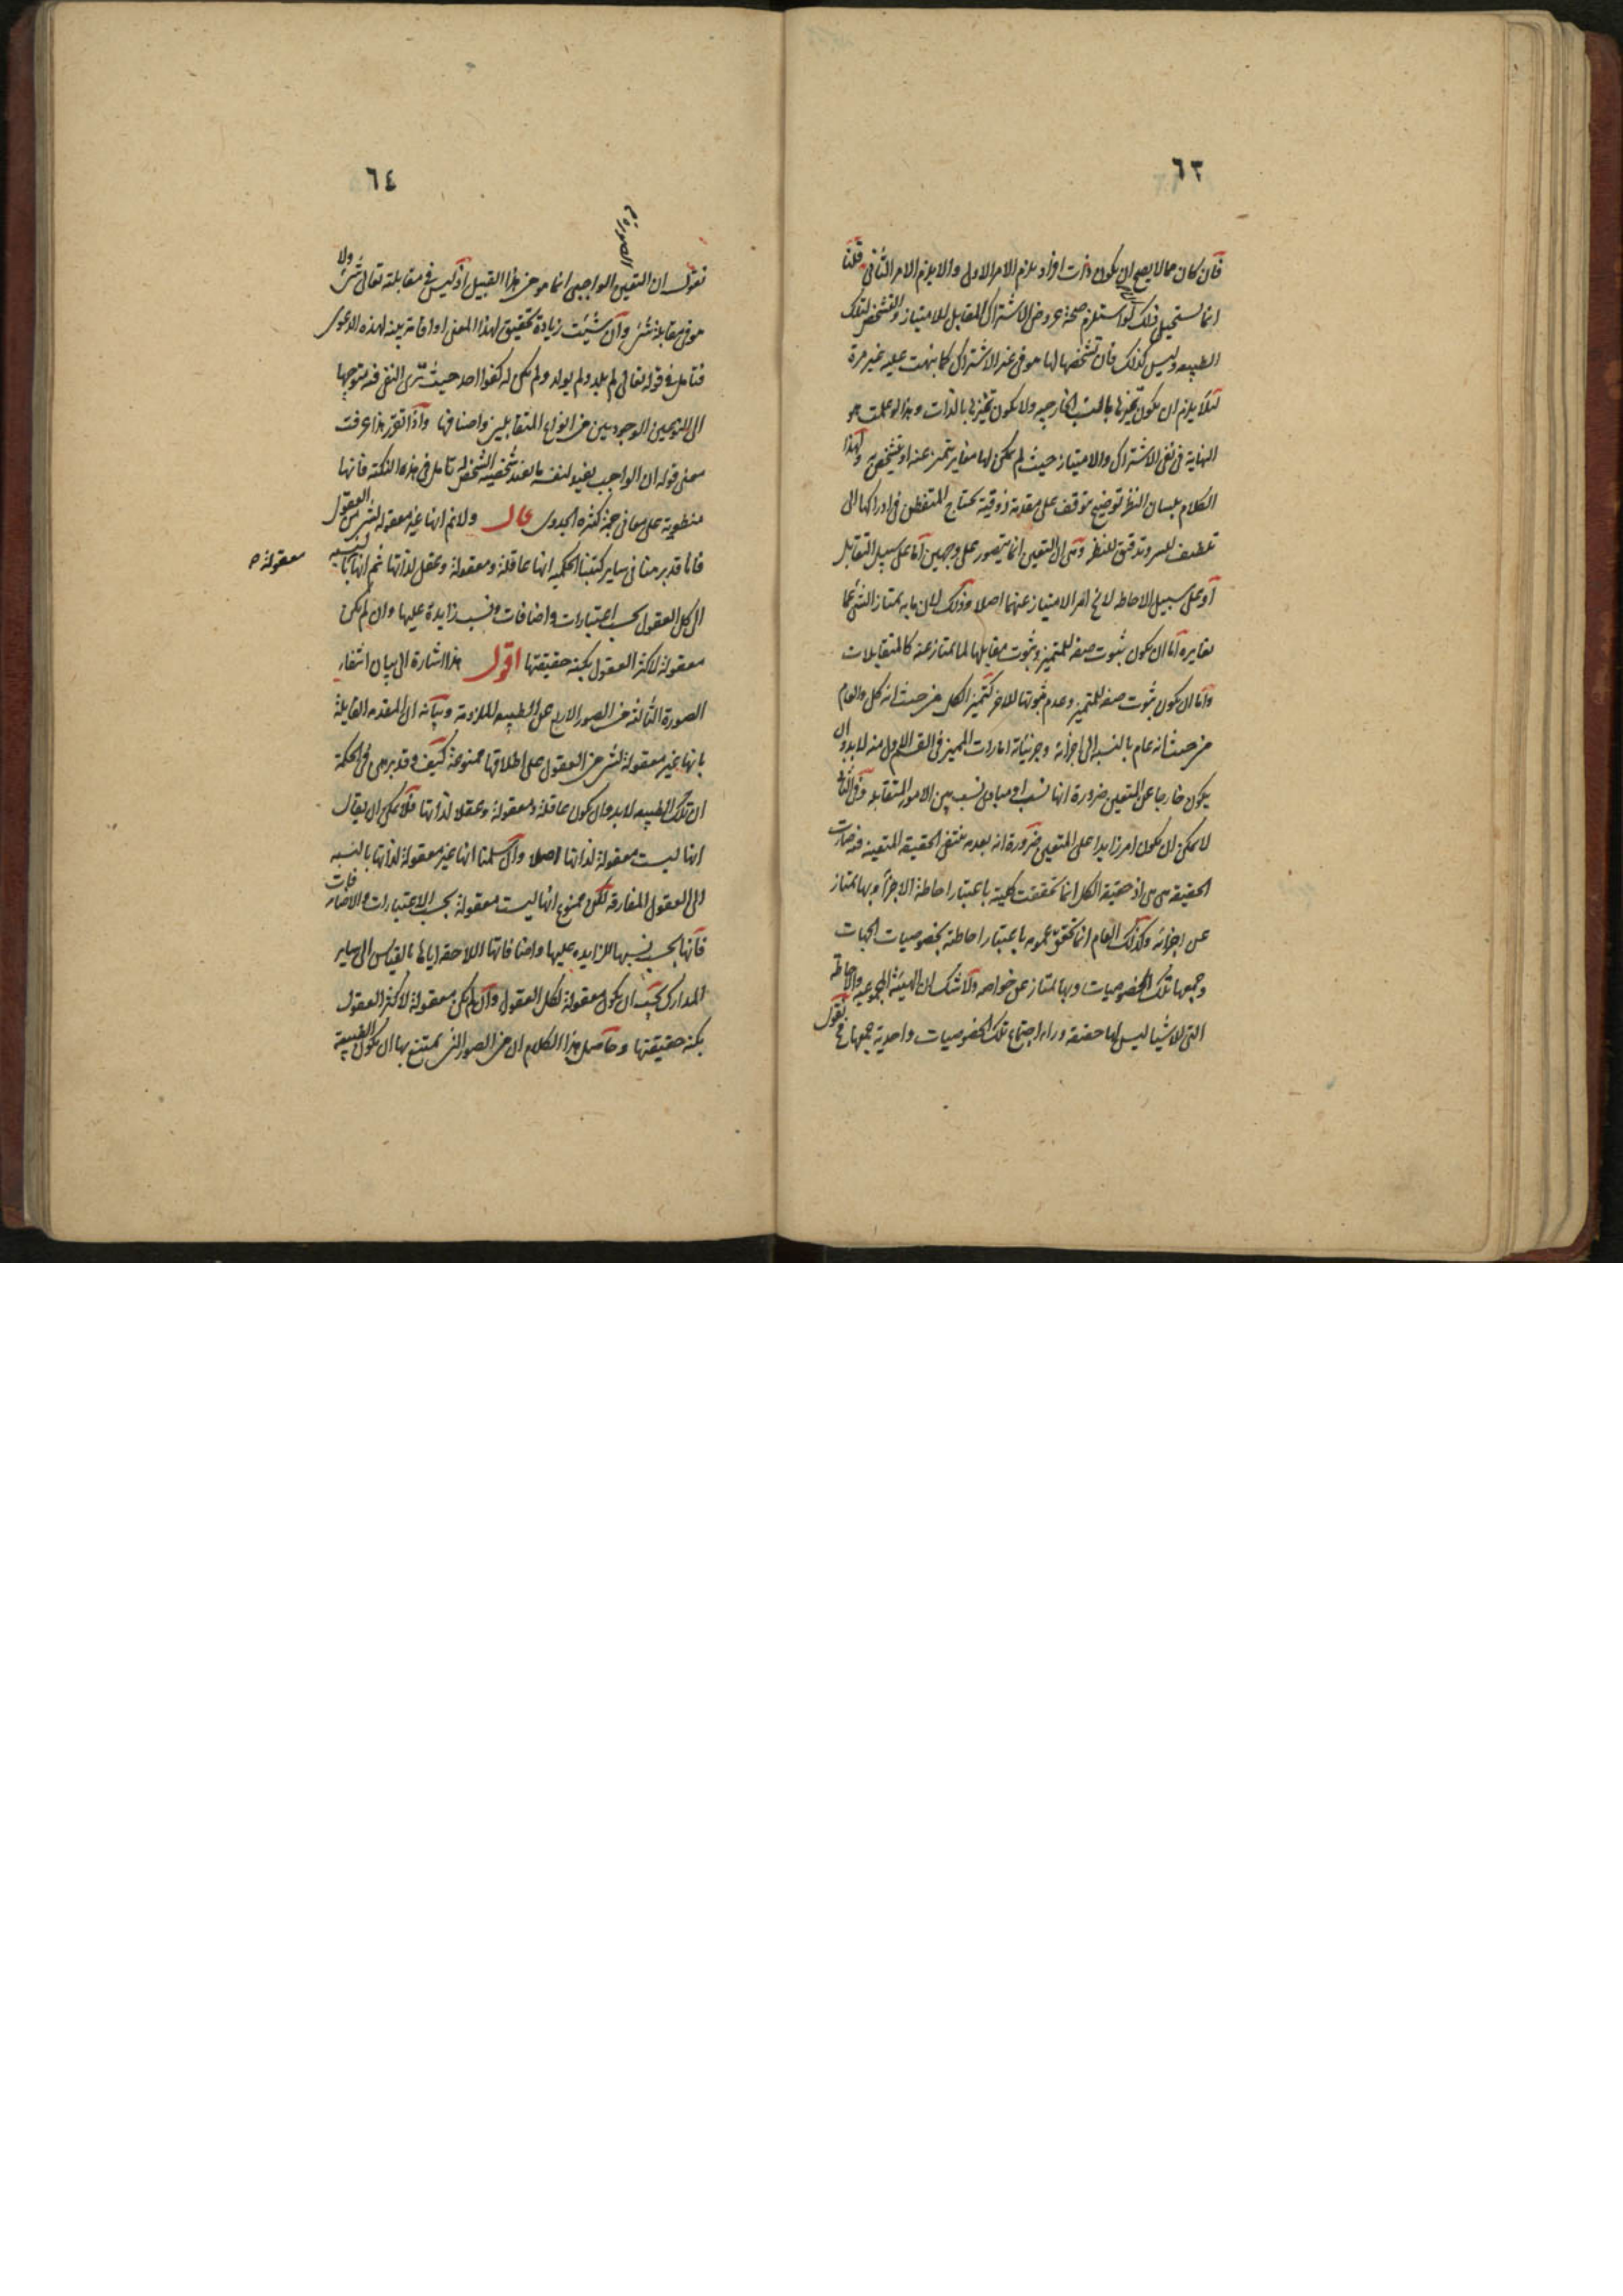 ٦٣
فان كان مما لا يصح ان يكون ذات افراد يلزم الامر الاول والا يلزم الامر الثاني قلنا
انما يستحيل ذلك لو استلزم صحة عروض الاشتراك المقابل للامتياز والتشخص لتلك
الطبيعه وليس كذلك فان تشخصها لها هو في عدم الاشتراك كما نبهت عليه غير مرة
لئلا يلزم ان يكون تميزها بالنسب الخارجيه ولا يكون تميزها بالذات وهذا لو علمت هو
النهاية في نفى الاشتراك والامتياز حيث لم يكن لها مغاير يتميز عنه او يتشخص به ولهذا
الكلام بلسان النظر توضيح يتوقف على مقدمة ذوقية يحتاج المتفطن في ادراكها الى
تلطيف للسر وتدقيق للنظر وهى ان التعين انما يتصور على وجهين اما على سبيل التقابل
او على سبيل الاحاطه لا يخ امر الامتياز عنهما اصلا وذلك لان ما به يمتاز الشئ عما
يغايره اما ان يكون بثبوت صفه للمتميز وثبوت مقابلها لما يمتاز عنه كالمتقابلات
واما ان يكون بثبوت صفه للمتميز وعدم ثبوتها للاخر كتميز الكل من حيث انه كل والعام
من حيث انه عام بالنسبه الى اجزائه وجزئياته امارات المميز في القسم الاول منه لا بد وان
يكون خارجا عن المتعين ضرورة انها نسب او مبادى نسب بين الامور المتقابله وفي الثاني
لا يمكن ان يكون امر زايدا على المتعين ضرورة انه بعدمه ينتفى الحقيقه المتعينه وبه صارت
الحقيقه هى هى اذ حقيقة الكل انما تحققت كليته باعتبار احاطة الاجزاء وبها يمتاز
عن اجزائه وكذلك العام انما يتحقق عمومه باعتبار احاطته بخصوصيات الجهات
وجمعها تلك الخصوصيات وبها يمتاز عن خواصه ولا شك ان الهيئة المجموعيه والاحاطه
التى للاشيا ليس لها حقيقه وراء اجتماع تلك الخصوصيات واحدية جمعها فح نقول
٦٤
الصورة م
نقول ان التعين الواجبى انما هو من هذا القبيل اذ ليس في مقابلته تعالى شئ ولا
هو في مقابلة شئ وان شئت زيادة تحقيق لهذا المعنى او اقامة بينه لهذه الدعوى
فتامل في قوله تعالى لم يلد ولم يولد ولم يكن له كفوا احد حيث ترى النفى فيه متوجها
الى النوعين الوجوديين من انواع المتقابلين واصنافها واذا تقرر هذا عرفت
معنى قوله ان الواجب يفيد لنفسه ما يفيد شخصية الشخص له تامل في هذه النكته فانها
منطوية على معانى جمة كثيره الجدوى قال ولا نم انها غير معقوله لشئ من العقول
فانا قد برهنا في ساير كتبنا الحكميه انها عاقلة ومعقولة وعقل لذاتها ثم انها بالنسبه
معقولة م
الى كل العقول بحسب اعتبارات واضافات ونسب زايدة عليها وان لم يكن
معقولة لاكثر العقول بكنه حقيقتها اقول هذا اشارة الى بيان انتفاء
الصورة الثالثه من الصور الاربع عن الطبيعه الملازمة وبيانه ان المقدمه القايلة
بانها غير معقولة لشئ من العقول على اطلاقها ممنوعة كيف وقد برهن في الحكمة
ان تلك الطبيعه لا بد وان يكون عاقلة ومعقولة وعقلا لذاتها فلا يمكن ان يقال
انها ليست معقولة لذاتها اصلا وان سلمنا انها غير معقولة لذاتها بالنسبه
الى العقول المفارقه لكن ممنوع انها ليست معقولة بحسب الاعتبارات والاضافات
فانها بحسب نسبها الزايده عليها واضافاتها اللاحقه اياها بالقياس الى ساير
المدارك يجب ان يكون معقولة لكل العقول وان لم يكن معقولة لاكثر العقول
بكنه حقيقتها وحاصل هذا الكلام ان من الصور التى يمتنع بها ان يكون الطبيعة